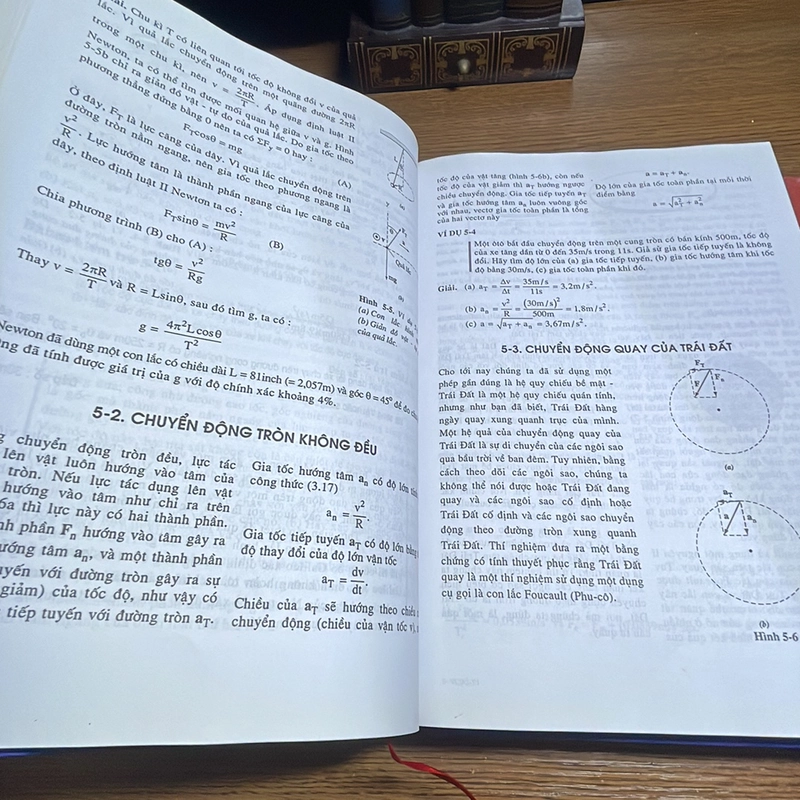 Chu kì T có liên quan tới tốc độ không đổi v của quả
lắc. Vì quả lắc chuyển động trên một quãng đường 2πR
trong một chu kì, nên v = 2πR/T. Áp dụng định luật II
Newton, ta có thể tìm được mối quan hệ giữa v và g. Hình
5-5b chỉ ra giản đồ vật - tự do của quả lắc. Do gia tốc theo
phương thẳng đứng bằng 0 nên ta có ΣFy = 0 hay :
F_Tcosθ = mg (A)
Ở đây, F_T là lực căng của dây. Vì quả lắc chuyển động trên
đường tròn nằm ngang, nên gia tốc theo phương ngang là
v²/R. Lực hướng tâm là thành phần ngang của lực căng của
dây, theo định luật II Newton ta có :
F_Tsinθ = mv²/R (B)
Chia phương trình (B) cho (A) :
tgθ = v²/Rg
Thay v = 2πR/T và R = Lsinθ, sau đó tìm g, ta có :
g = 4π²Lcosθ/T²
Newton đã dùng một con lắc có chiều dài L = 81inch (= 2,057m) và góc θ = 45° để đo
đã tính được giá trị của g với độ chính xác khoảng 4%.
Quả lắc
(a)
Hình 5-5.
(a) Con lắc
(b) Giản đồ vật
của quả lắc.
5-2. CHUYỂN ĐỘNG TRÒN KHÔNG ĐỀU
chuyển động tròn đều, lực tác
lên vật luôn hướng vào tâm của
tròn. Nếu lực tác dụng lên vật
hướng vào tâm như chỉ ra trên
6a thì lực này có hai thành phần.
phần Fn hướng vào tâm gây ra
hướng tâm an, và một thành phần
tuyến với đường tròn gây ra sự
giảm) của tốc độ, như vậy có
tiếp tuyến với đường tròn aT.
Gia tốc hướng tâm an có độ lớn
công thức (3.17)
an = v²/R.
Gia tốc tiếp tuyến aT có độ lớn bằng
độ thay đổi của độ lớn vận tốc
aT = dv/dt.
Chiều của aT sẽ hướng theo chiều
chuyển động (chiều của vận tốc v),
tốc độ của vật tăng (hình 5-6b), còn nếu
tốc độ của vật giảm thì aT hướng ngược
chiều chuyển động. Gia tốc tiếp tuyến aT
và gia tốc hướng tâm an luôn vuông góc
với nhau, vectơ gia tốc toàn phần là tổng
của hai vectơ này
a = aT + an.
Độ lớn của gia tốc toàn phần tại mỗi thời
điểm bằng
a = √(aT² + an²)
VÍ DỤ 5-4
Một ôtô bắt đầu chuyển động trên một cung tròn có bán kính 500m, tốc độ
của xe tăng dần từ 0 đến 35m/s trong 11s. Giả sử gia tốc tiếp tuyến là không
đổi. Hãy tìm độ lớn của (a) gia tốc tiếp tuyến, (b) gia tốc hướng tâm khi tốc
độ bằng 30m/s, (c) gia tốc toàn phần khi đó.
Giải. (a) aT = Δv/Δt = 35m/s/11s = 3,2m/s².
(b) an = v²/R = (30m/s)²/500m = 1,8m/s².
(c) a = √(aT + an) = 3,67m/s².
5-3. CHUYỂN ĐỘNG QUAY CỦA TRÁI ĐẤT
Cho tới nay chúng ta đã sử dụng một
phép gần đúng là hệ quy chiếu bề mặt -
Trái Đất là một hệ quy chiếu quán tính,
nhưng như bạn đã biết, Trái Đất hàng
ngày quay xung quanh trục của mình.
Một hệ quả của chuyển động quay của
Trái Đất là sự di chuyển của các ngôi sao
qua bầu trời về ban đêm. Tuy nhiên, bằng
cách theo dõi các ngôi sao, chúng ta
không thể nói được hoặc Trái Đất đang
quay và các ngôi sao cố định hoặc
Trái Đất cố định và các ngôi sao chuyển
động theo đường tròn xung quanh
Trái Đất. Thí nghiệm đưa ra một bằng
chứng có tính thuyết phục rằng Trái Đất
quay là một thí nghiệm sử dụng một dụng
cụ gọi là con lắc Foucault (Phu-cô).
F_T
F
Fn
(a)
aT
a
an
(b)
Hình 5-6